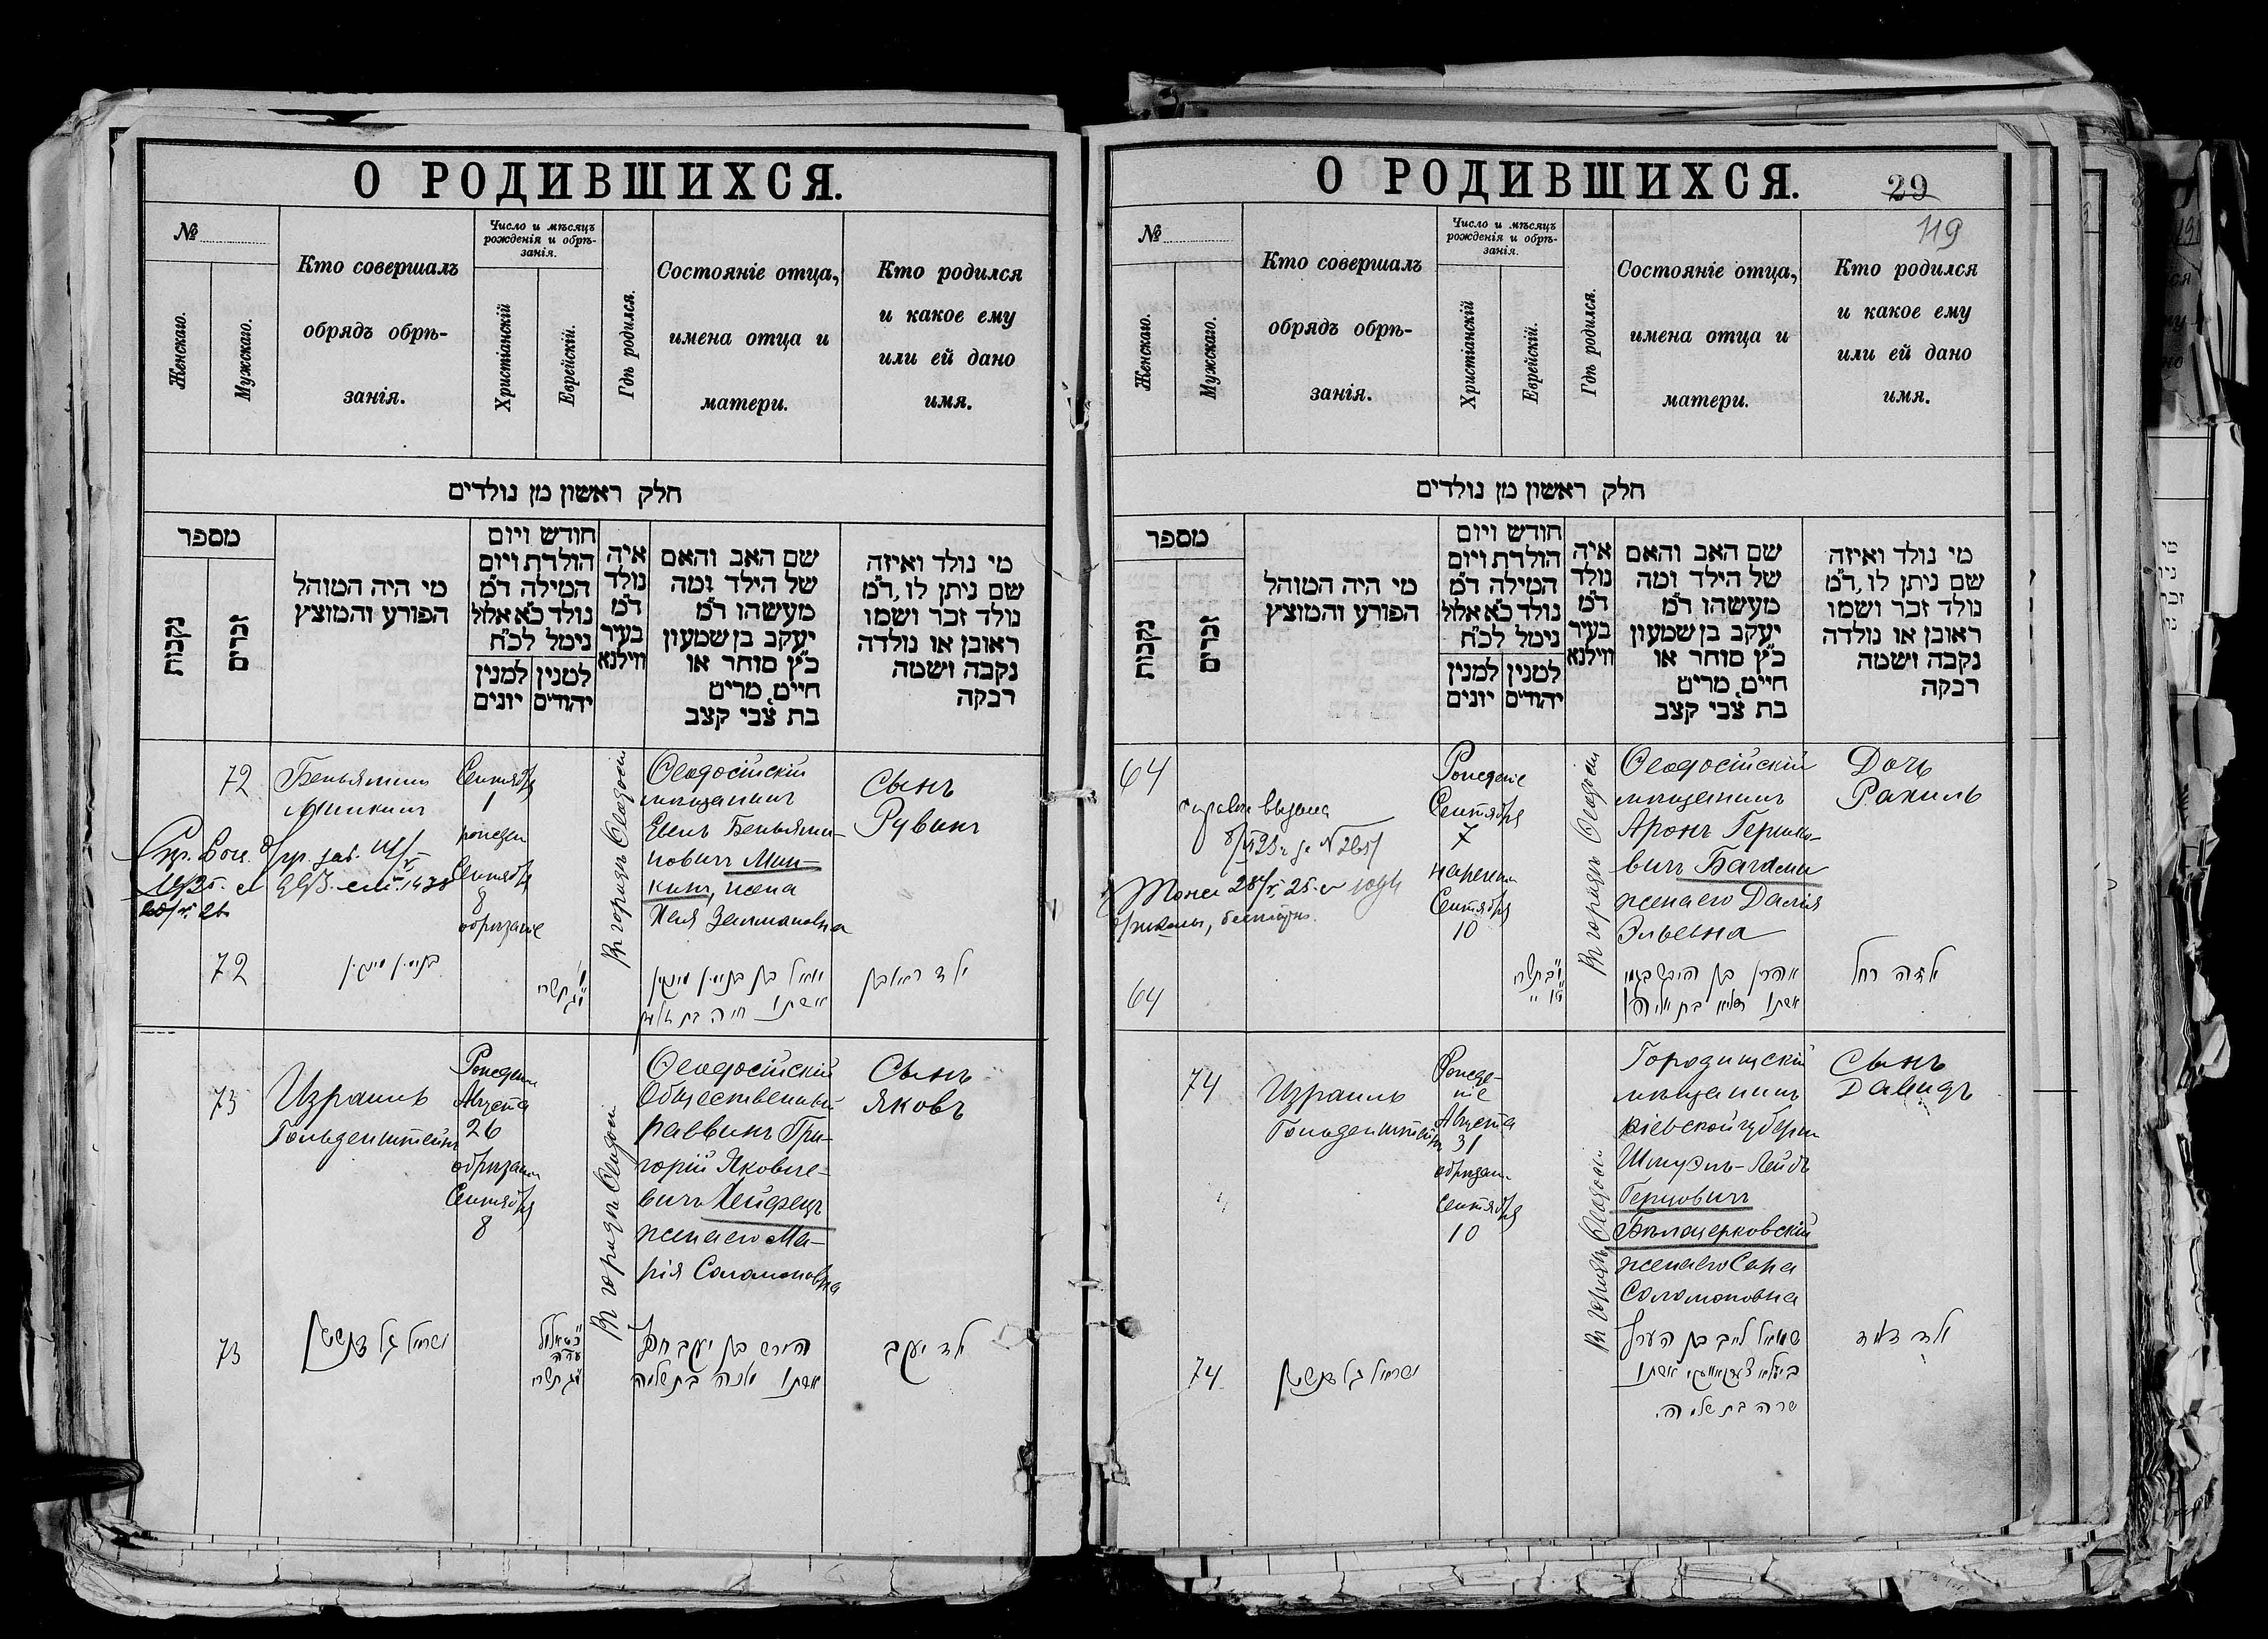 О РОДИВШИХСЯ.
№
Женскаго.
Мужскаго.
Кто совершалъ
обрядъ обрѣ-
занія.
Число и мѣсяцъ
рожденія и обрѣ-
занія.
Христіанскій
Еврейскій.
Гдѣ родился.
Состояніе отца,
имена отца и
матери.
Кто родился
и какое ему
или ей дано
имя.
חלק ראשון מן נולדים
מספר
נקבות
זכרים
מי היה המוהל
הפורע והמוצץ
חודש ויום
הולדת ויום
המילה ד"מ
נולד כ"א אלול
נימל לכ"ח
למנין
יהודים
למנין
יונים
איה
נולד
ד"מ
בעיר
ווילנא
שם האב והאם
של הילד ומה
מעשהו ד"מ
יעקב בן שמעון
כ"ץ סוחר או
חיים, מרים
בת צבי קצב
מי נולד ואיזה
שם ניתן לו, ד"מ
נולד זכר ושמו
ראובן או נולדה
נקבה ושמה
רבקה
72
Беньяминъ
Минкинъ
Сентября
1
рожден
Сентября
8
обрѣзаніе
Въ городѣ Ѳеодосіи
Ѳеодосійскій
мѣщанинъ
Беньями-
новичъ Мин-
кинъ, жена
Хая Залмановна
Сынъ
Рувинъ
72
בנימין מינקין
ילד ראובן
73
Израиль
Гольденштейнъ
Рожденіе
Августа
26
обрѣзаніе
Сентября
8
Въ городѣ Ѳеодосіи
Ѳеодосійскій
Общественный
раввинъ Гри-
горій Яковле-
вичъ Хейфецъ
жена его Ма-
рія Соломоновна
Сынъ
Яковъ
73
ילד יעקב
О РОДИВШИХСЯ.
29
119
№
Женскаго.
Мужскаго.
Кто совершалъ
обрядъ обрѣ-
занія.
Число и мѣсяцъ
рожденія и обрѣ-
занія.
Христіанскій
Еврейскій.
Гдѣ родился.
Состояніе отца,
имена отца и
матери.
Кто родился
и какое ему
или ей дано
имя.
חלק ראשון מן נולדים
מספר
נקבות
זכרים
מי היה המוהל
הפורע והמוצץ
חודש ויום
הולדת ויום
המילה ד"מ
נולד כ"א אלול
נימל לכ"ח
למנין
יהודים
למנין
יונים
איה
נולד
ד"מ
בעיר
ווילנא
שם האב והאם
של הילד ומה
מעשהו ד"מ
יעקב בן שמעון
כ"ץ סוחר או
חיים, מרים
בת צבי קצב
מי נולד ואיזה
שם ניתן לו, ד"מ
נולד זכר ושמו
ראובן או נולדה
נקבה ושמה
רבקה
64
выдана
Рожденіе
Сентября
7
наречена
Сентября
10
Въ городѣ Ѳеодосіи
Ѳеодосійскій
мѣщанинъ
Аронъ Гершко-
вичъ
жена его Далія
Эльевна
Дочь
Рахиль
64
ילדה רחל
74
Израиль
Гольденштейнъ
Рожде-
ніе
Августа
31
обрѣзан.
Сентября
10
Въ городѣ Ѳеодосіи
Городищскій
мѣщанинъ
Кіевской губерніи
Шмуэль-Лейбъ
Герцовичъ
Бѣлоцерковскій
жена его Сара
Соломоновна
Сынъ
Давидъ
74
ילד דוד